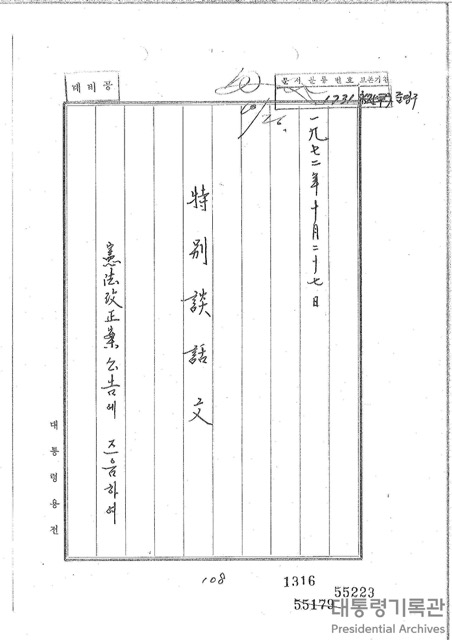 대비공
문서분류번호 보존기간
1731 준영구
一九七二年十月二十七日
特別談話文
憲法改正案公告에 즈음하여
대통령용전
108
1316
55223
55179
대통령기록관
Presidential Archives